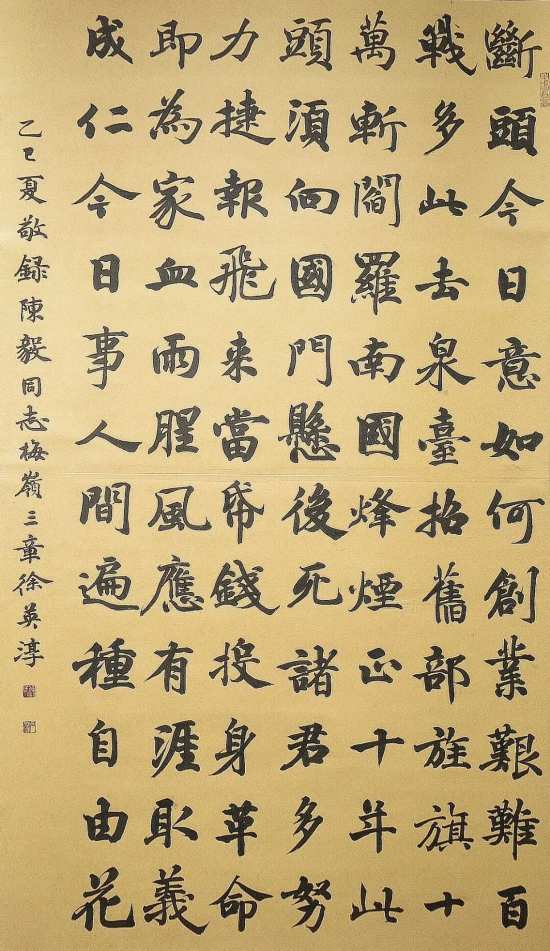 斷頭今日意如何創業艱難百
戰多此去泉臺招舊部旌旗十
萬斬閻羅南國烽煙正十年此
頭須向國門懸後死諸君多努
力捷報飛來當帋錢投身革命
即為家血雨腥風應有涯取義
成仁今日事人間遍種自由花
乙巳夏敬録陳毅同志梅嶺三章徐英淳